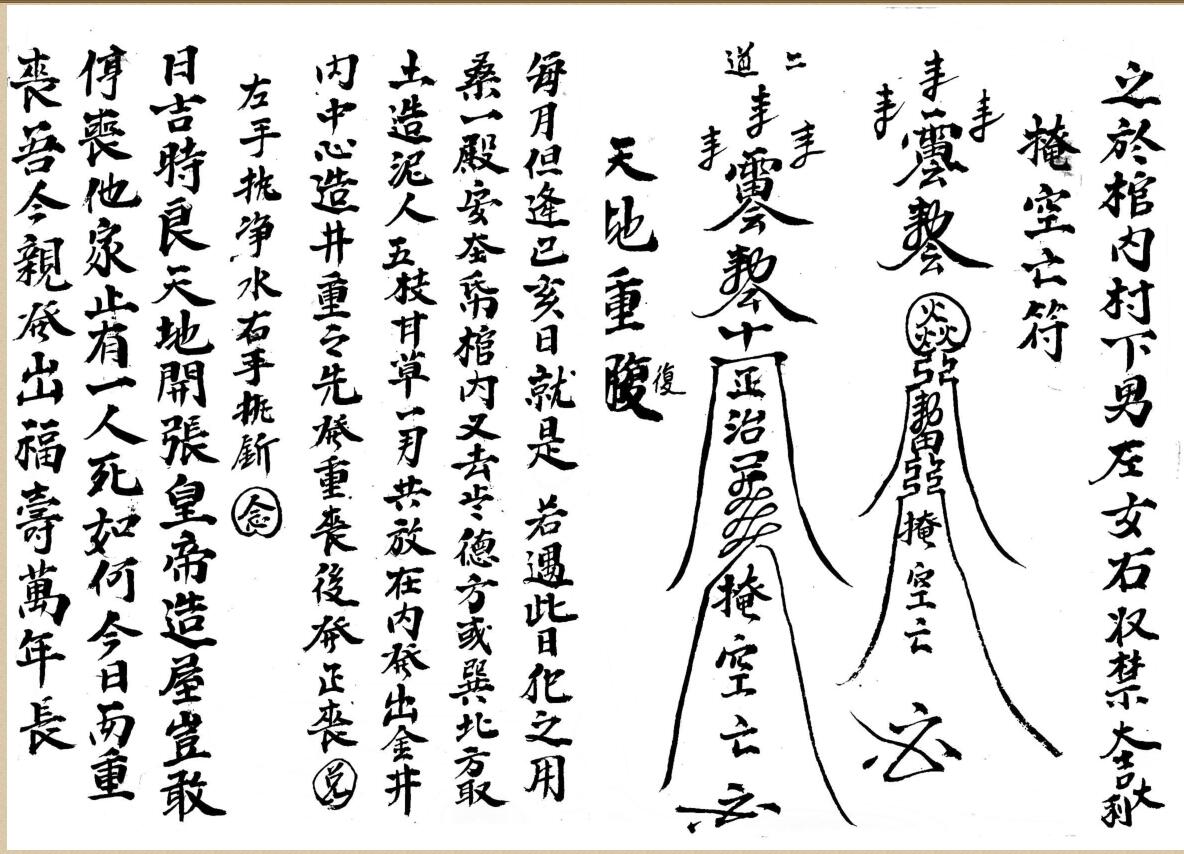 之於棺内村下男左女右收禁大吉大利
掩空亡符
掩空亡
二道
正治
掩空亡
天地重腹
復
每月但逢巳亥日就是 若遇此日犯之用
桑一殿安在帋棺内又去歩德方或巽北方取
土造泥人五枝甘草一月共放在内發出金井
内中心造井重之先發重喪後發正喪
左手执净水右手执斩念
日吉時良天地開張皇帝造屋豈敢
停喪他家止有一人死如何今日而重
喪吾今親發出福壽萬年長